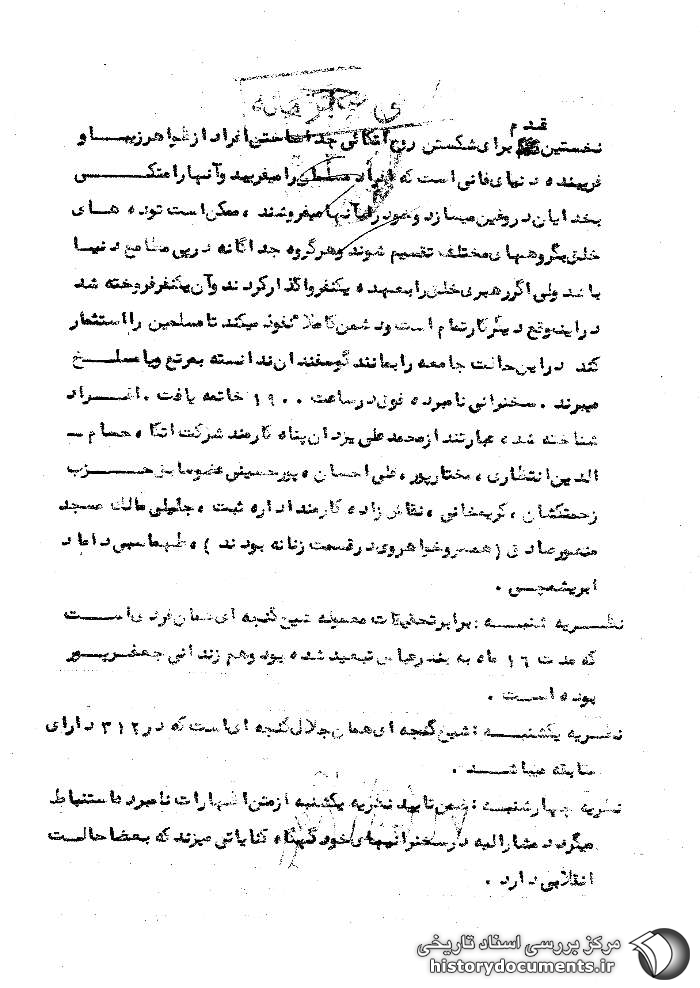 قدم
نخستین برای شکستن روح اتکائی جدا ساختن افراد از ظواهر زیبا و
فریبنده دنیای فانی است که افراد مسلط را میفریبد و آنها را متکی
بخدایان دروغین میسازد و خود را به آنها میفروشند ، ممکن است توده های
خلق بگروههای مختلف تقسیم شوند و هر گروه جداگانه در پی مطامع دنیا
باشد ولی اگر رهبری خلق را بعهده یکنفر واگذار کردند و آن یکنفر فروخته شد
در اینموقع دیگر کار تمام است و دشمن کاملا نفوذ میکند تا مسلمین را استثمار
کند در این حالت جامعه را بمانند گوسفندان ندانسته بمرتع و یا مسلخ
میبرند . سخنرانی نامبرده فوق در ساعت ۱۹۰۰ خاتمه یافت . افراد
شناخته شده عبارتند از محمد علی یزدان پناه کارمند شرکت اتکا ، حسام ـ
الدین انتظاری ، مختارپور ، علی احسان ، پورحسینی عضو سابق حزب
زحمتکشان ، کریمخانی ، نقاش زاده کارمند اداره ثبت ، جلیلی مالک مسجد
منصور صادقی ( همسر و خواهر وی در قسمت زنانه بودند ) ، طهماسبی داماد
ابریشمچی .
نظریه شنبه : برابر تحقیقات معموله شیخ گنجه ای همان فردی است
که مدت ۱۶ ماه به بندرعباس تبعید شده بود و هم زندانی جعفرپور
بوده است .
نظریه یکشنبه : شیخ گنجه ای همان جلالی گنجه ای است که در ۳۱۲ دارای
سابقه میباشد .
نظریه چهارشنبه : ضمن تایید نظریه یکشنبه از متن اظهارات نامبرده استنباط
میگردد مشارالیه در سخنرانیهای خود گهگاه کنایاتی میزند که بعضا حالت
انقلابی دارد .
مرکز بررسی اسناد تاریخی
historydocuments.ir